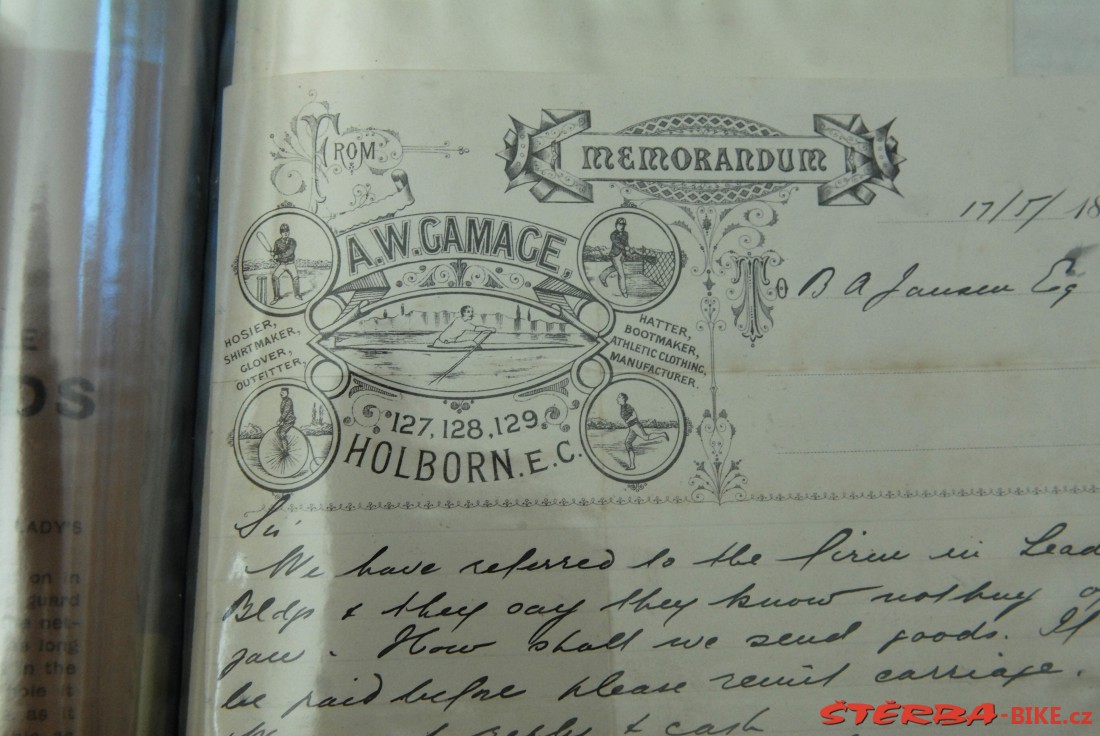 FROM
MEMORANDUM
17/5/18
A.W. GAMAGE,
TO B A Jansen Esq
HOSIER,
SHIRTMAKER,
GLOVER,
OUTFITTER,
HATTER,
BOOTMAKER,
ATHLETIC CLOTHING,
MANUFACTURER.
127, 128, 129.
HOLBORN. E.C.
Sir
We have referred to the firm in Lead
Bldgs & they say they know nothing of
you. How shall we send goods. If
be paid before please remit carriage.
reply & cash
E
DS
LADY'S
on in
guard
net-
long
n the
as it
ŠTĚRBA-BIKE.cz